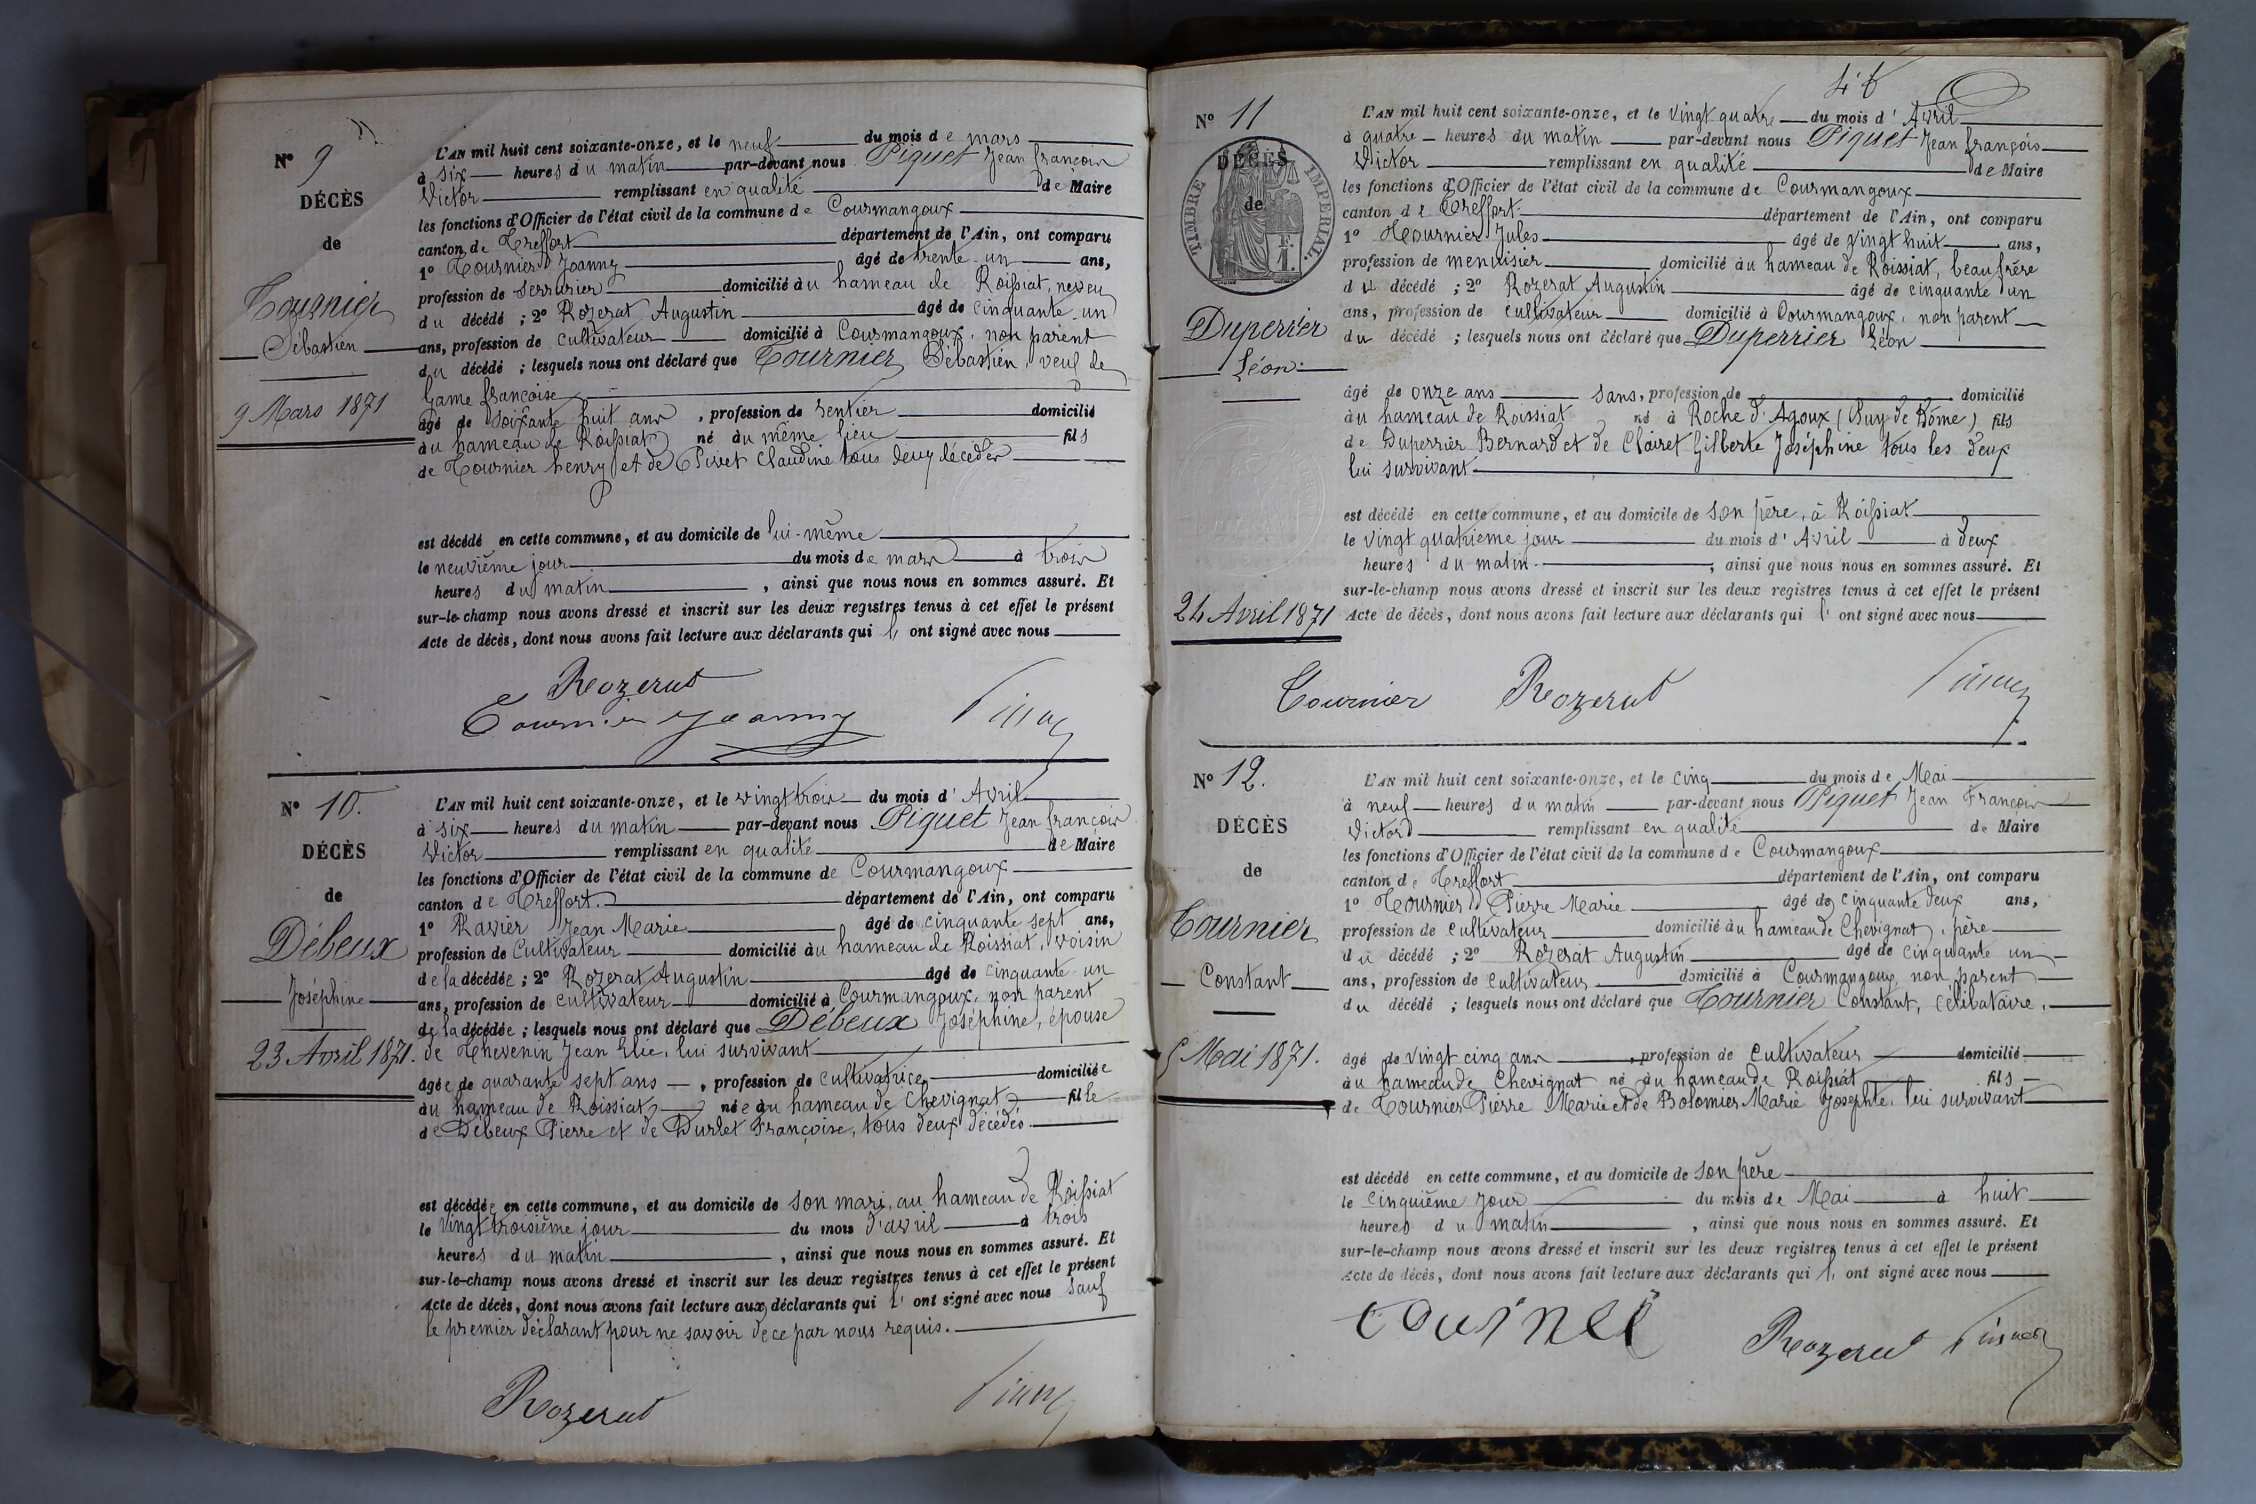 N° 9
DÉCÈS
de
Tournier
Sébastien
9 Mars 1871
L'AN mil huit cent soixante-onze, et le neuf du mois de mars
à six heures du matin par-devant nous Piquet Jean françois
Victor remplissant en qualité de Maire
les fonctions d'Officier de l'état civil de la commune de Courmangoux
canton de Treffort département de l'Ain, ont comparu
1° Tournier Joanny âgé de trente-un ans,
profession de serrurier domicilié au hameau de Roissiat, neveu
du décédé ; 2° Rozerat Augustin âgé de cinquante-un
ans, profession de cultivateur domicilié à Courmangoux, non parent
du décédé ; lesquels nous ont déclaré que Tournier Sébastien, veuf de
Game françoise
âgé de soixante huit ans, profession de rentier domicilié
au hameau de Roissiat né au même lieu fils
de Tournier henry et de Pivet Claudine tous deux décédés
est décédé en cette commune, et au domicile de lui-même
le neuvième jour du mois de mars à trois
heures du matin, ainsi que nous nous en sommes assuré. Et
sur-le-champ nous avons dressé et inscrit sur les deux registres tenus à cet effet le présent
Acte de décès, dont nous avons fait lecture aux déclarants qui l'ont signé avec nous
Rozerat
Tournier Joanny
N° 10.
DÉCÈS
de
Débeux
Joséphine
23 Avril 1871.
L'AN mil huit cent soixante-onze, et le vingt trois du mois d'Avril
à six heures du matin par-devant nous Piquet Jean françois
Victor remplissant en qualité de Maire
les fonctions d'Officier de l'état civil de la commune de Courmangoux
canton de Treffort. département de l'Ain, ont comparu
1° Ravier Jean Marie âgé de cinquante sept ans,
profession de Cultivateur domicilié au hameau de Roissiat, voisin
de la décédée ; 2° Rozerat Augustin âgé de cinquante-un
ans, profession de cultivateur domicilié à Courmangoux, non parent
de la décédée ; lesquels nous ont déclaré que Débeux Joséphine, épouse
de Thevenin Jean Elie, lui survivant
âgée de quarante sept ans, profession de cultivatrice domiciliée
au hameau de Roissiat née au hameau de Chevignat fille
de Débeux Pierre et de Durlet Françoise, tous deux décédés
est décédée en cette commune, et au domicile de son mari, au hameau de Roissiat
le vingt troisième jour du mois d'avril à trois
heures du matin, ainsi que nous nous en sommes assuré. Et
sur-le-champ nous avons dressé et inscrit sur les deux registres tenus à cet effet le présent
Acte de décès, dont nous avons fait lecture aux déclarants qui l'ont signé avec nous sauf
le premier déclarant pour ne savoir de ce par nous requis.
Rozerat
N° 11
DÉCÈS
de
TIMBRE IMPÉRIAL.
Duperrier
Léon
24 Avril 1871
L'AN mil huit cent soixante-onze, et le vingt quatre du mois d'Avril
à quatre heures du matin par-devant nous Piquet Jean françois
Victor remplissant en qualité de Maire
les fonctions d'Officier de l'état civil de la commune de Courmangoux
canton de Treffort. département de l'Ain, ont comparu
1° Tournier Jules âgé de vingt huit ans,
profession de menuisier domicilié au hameau de Roissiat, beau frère
du décédé ; 2° Rozerat Augustin âgé de cinquante un
ans, profession de cultivateur domicilié à Courmangoux, non parent
du décédé ; lesquels nous ont déclaré que Duperrier Léon
âgé de onze ans sans, profession de domicilié
au hameau de Roissiat né à Roche d'Agoux (Puy de Dôme) fils
de Duperrier Bernard et de Clairet Gilberte Joséphine tous les deux
lui survivant
est décédé en cette commune, et au domicile de son père, à Roissiat
le vingt quatrième jour du mois d'Avril à deux
heures du matin., ainsi que nous nous en sommes assuré. Et
sur-le-champ nous avons dressé et inscrit sur les deux registres tenus à cet effet le présent
Acte de décès, dont nous avons fait lecture aux déclarants qui l'ont signé avec nous
Tournier Rozerat
N° 12.
DÉCÈS
de
Tournier
Constant
5 Mai 1871.
L'AN mil huit cent soixante-onze, et le cinq du mois de Mai
à neuf heures du matin par-devant nous Piquet Jean François
Victor remplissant en qualité de Maire
les fonctions d'Officier de l'état civil de la commune de Courmangoux
canton de Treffort département de l'Ain, ont comparu
1° Tournier Pierre Marie âgé de cinquante deux ans,
profession de cultivateur domicilié au hameau de Chevignat, père
du décédé ; 2° Rozerat Augustin âgé de cinquante un
ans, profession de cultivateur domicilié à Courmangoux, non parent
du décédé ; lesquels nous ont déclaré que Tournier Constant, célibataire,
âgé de vingt cinq ans, profession de cultivateur domicilié
au hameau de Chevignat né au hameau de Roissiat fils
de Tournier Pierre Marie et de Bolomier Marie Josephte, lui survivant
est décédé en cette commune, et au domicile de son père
le cinquième jour du mois de Mai à huit
heures du matin, ainsi que nous nous en sommes assuré. Et
sur-le-champ nous avons dressé et inscrit sur les deux registres tenus à cet effet le présent
Acte de décès, dont nous avons fait lecture aux déclarants qui l'ont signé avec nous
Rozerat